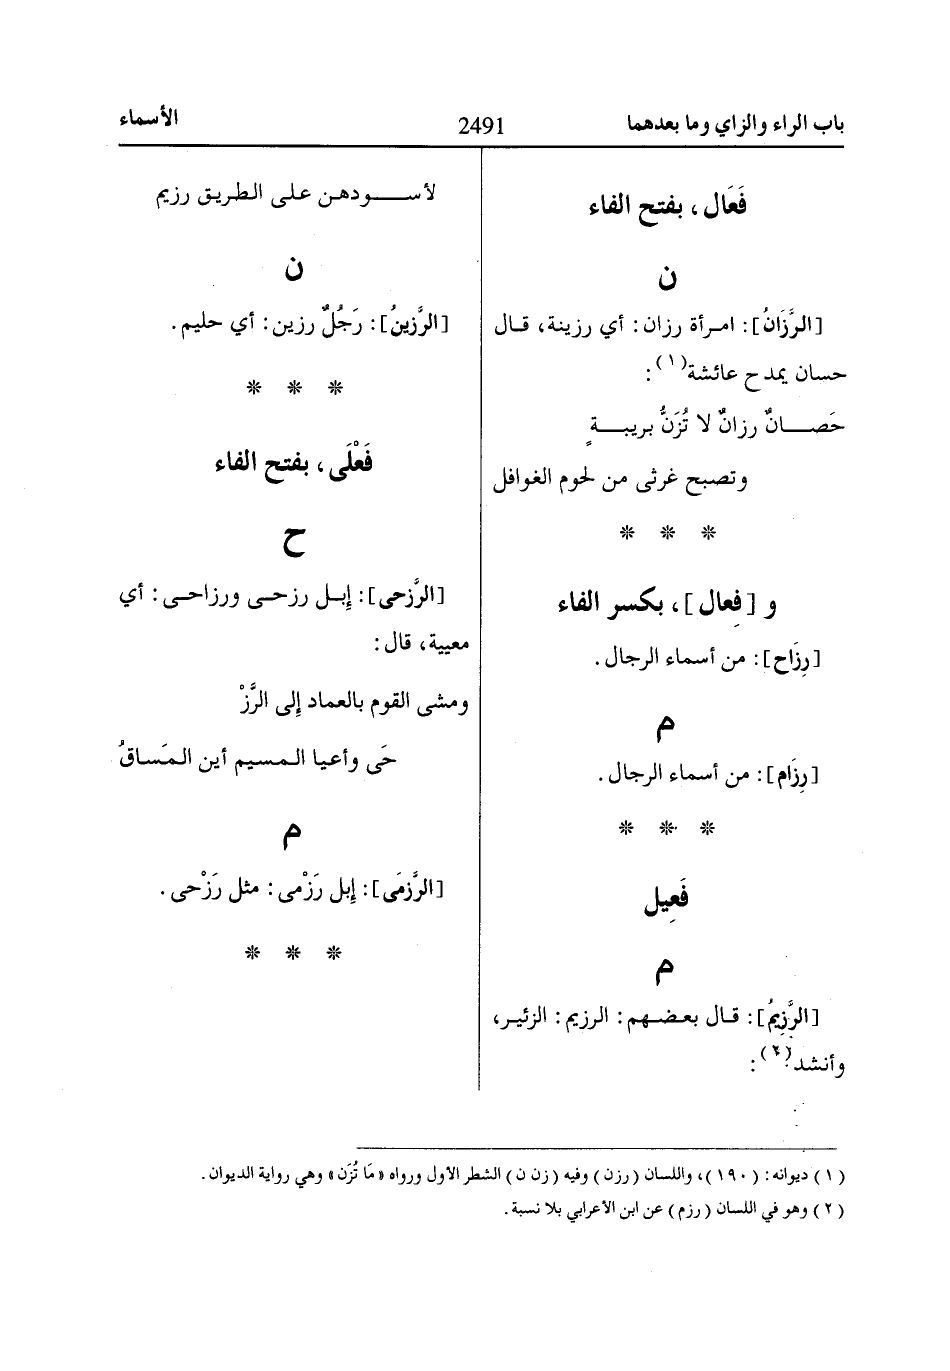 باب الراء والزاي وما بعدهما 2491 الأسماء
فَعَال، بفتح الفاء
ن
[الرَّزَانُ]: امرأة رزان: أي رزينة، قال
حسان يمدح عائشة(١):
حَصَـــانٌ رزانٌ لا تُزَنُّ بريبـــةٍ
وتصبح غرثى من لحوم الغوافل
* * *
و [فِعال]، بكسر الفاء
[رِزَاح]: من أسماء الرجال.
م
[رِزَام]: من أسماء الرجال.
* * *
فَعِيل
م
[الرَّزِيمُ]: قال بعضهم: الرزيم: الزئير،
وأنشد(٢):
لأســـودهن على الطريق رزيم
ن
[الرَّزينُ]: رَجُلٌ رزين: أي حليم.
* * *
فَعْلَى، بفتح الفاء
ح
[الرَّزحى]: إبل رزحى ورزاحى: أي
معيية، قال:
ومشى القوم بالعماد إلى الرَّزْ
حَى وأعيا المسيم أين المَساقُ
م
[الرَّزمَى]: إبل رَزْمى: مثل رَزْحى.
* * *
(١) ديوانه: (١٩٠)، واللسان (رزن) وفيه (زن ن) الشطر الاول ورواه «مَا تُزَن» وهي رواية الديوان.
(٢) وهو في اللسان (رزم) عن ابن الأعرابي بلا نسبة.